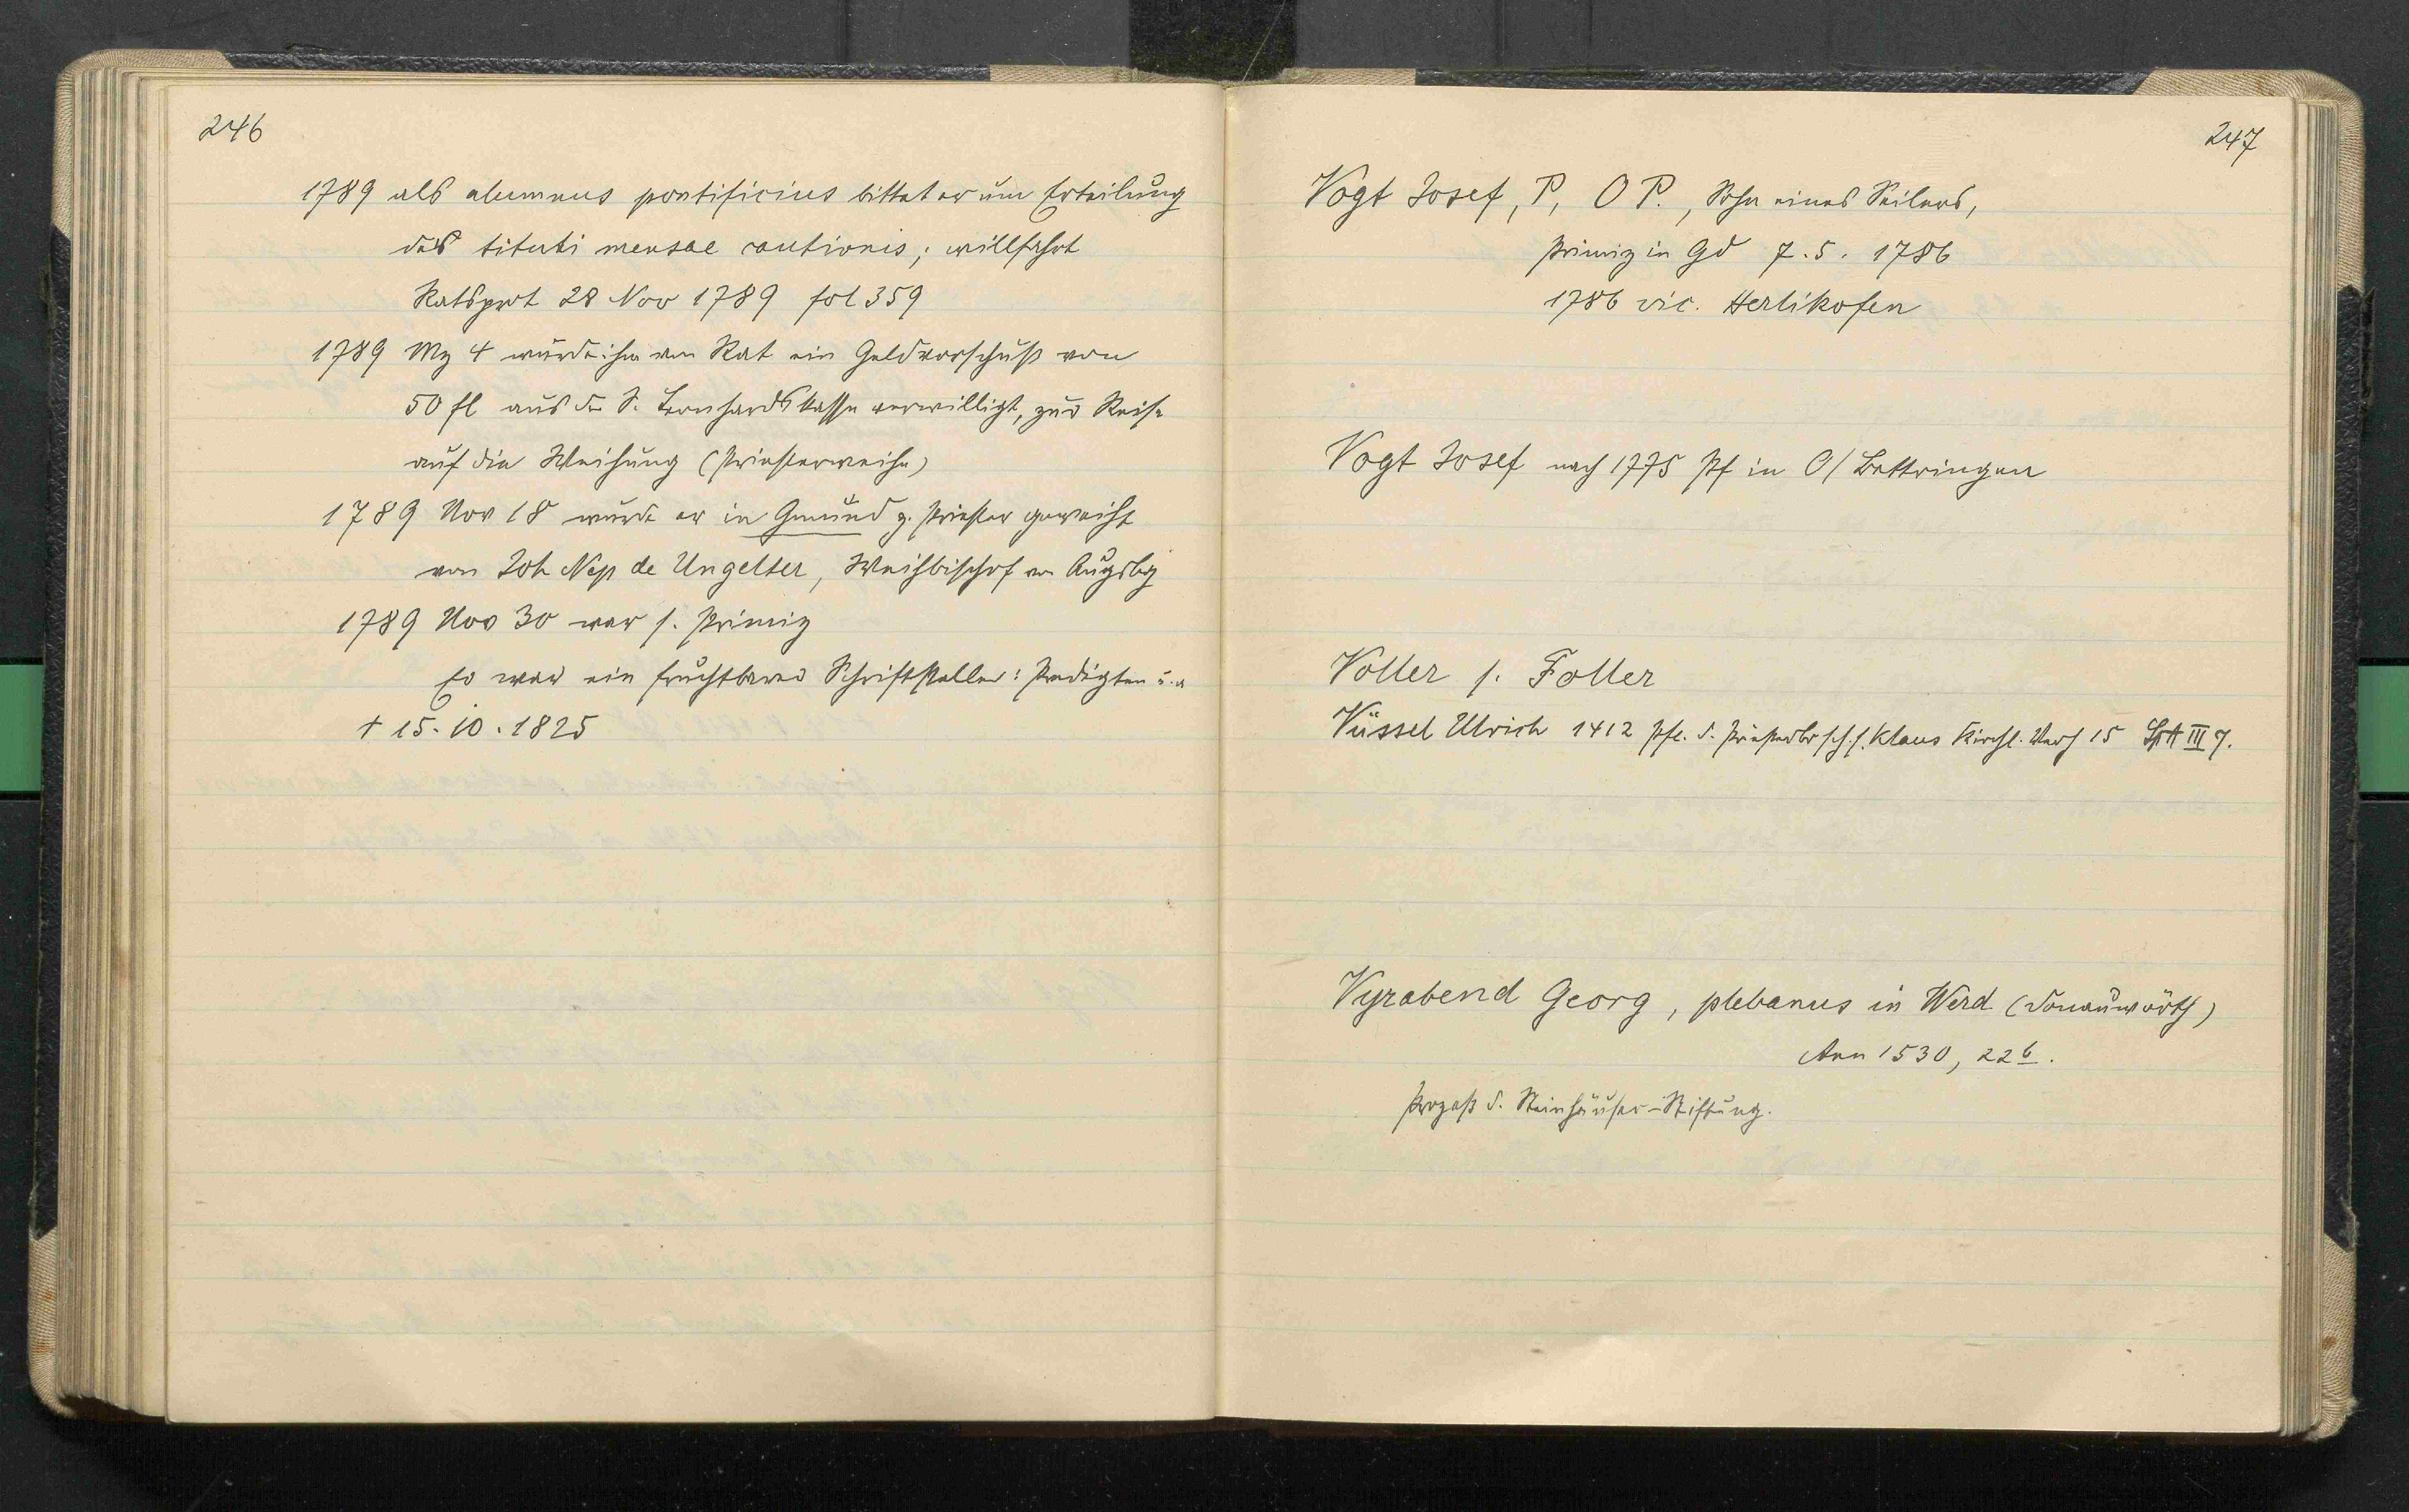 246
1789 als alumnus pontificius bittet er um Erteilung
des tituti mensae cautionis; willfahrt
Ratsprot 28 Nov 1789 fol 359
1789 Mz 4 wurde ihm von Rat ein Geldvorschuß von
50 fl aus der S. Leonhardskasse verwilligt, zur Reise
auf die Weihung (Priesterweihe)
1789 Nov 18 wurde er in Gmünd z. Priester geweiht
von Joh Nep de Ungelter, Weihbischof von Augsbg
1789 Nov 30 war s. Primiz
Er war ein fruchtbarer Schriftsteller: Predigten u. a
† 15. 10. 1825
247
Vogt Josef, P, O P., Sohn eines Seilers,
Primiz in Gd 7. 5. 1786
1786 vic. Herlikofen
Vogt Josef nach 1775 Pf in O/Bettringen
Voller s. Foller
Vüssel Ulrich 1412 Pfl. d. Priesterbrsch. s. Klaus Kirchl. Verh 15 SpA III 7.
Vyrabend Georg, plebanus in Werd (Donauwörth)
Ann 1530, 226.
Prozeß d. Steinhäuser-Stiftung.